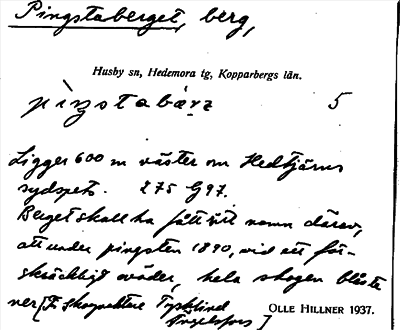 Pingstaberget, berg,
Husby sn, Hedemora tg, Kopparbergs län.
pìŋstabàrɪ 5
Ligger 600 m väster om Hedtjärns
sydspets. 275 G97.
Berget skall ha fått sitt namn därav,
att under pingsten 1890, vid ett för-
skräckligt oväder, hela skogen blåste
ner [F. skogvaktare
OLLE HILLNER 1937.